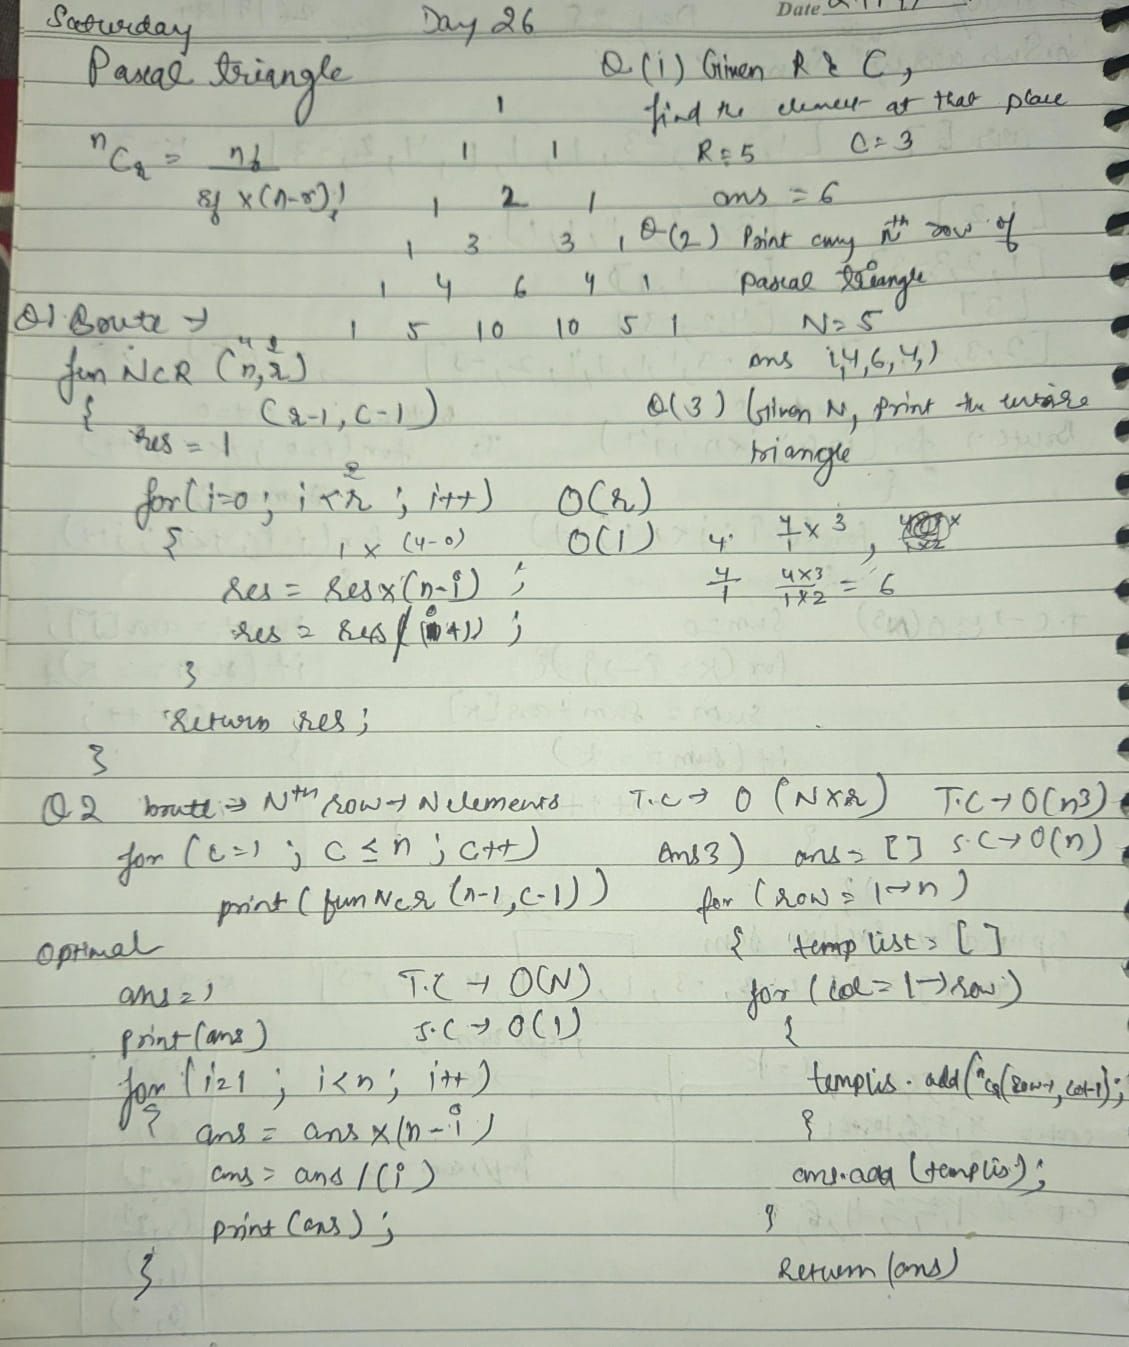 Saturday Day 26 Date
Pascal triangle
nCr = n! / r! x (n-r)!
1
1 1
1 2 1
1 3 3 1
1 4 6 4 1
1 5 10 10 5 1
Q (1) Given R & C,
find the element at that place
R = 5 C = 3
ans = 6
Q (2) Print any Nth row of
pascal triangle
N = 5
ans 1,4,6,4,1
Q (3) Given N, print the entire
triangle
Q1 Boute →
4 2
fun NCR (n, r)
{ (r-1, c-1)
res = 1
2
for(i=0 ; i < r ; i++) O(r)
{ 1 x (4-0) O(1)
res = res x (n-i) ;
res = res / (i+1) ;
}
return res ;
}
4. 4/1 x 3 ,
4/1 4x3/1x2 = 6
Q2 boute → Nth row → N elements T.C → O (N x r)
for (c=1 ; c ≤ n ; c++)
print ( fun Ncr (n-1, c-1) )
Optimal
ans = 1 T.C → O(N)
print (ans) S.C → O(1)
for (i=1 ; i<n ; i++)
{ ans = ans x (n-i)
ans = ans / (i)
print (ans) ;
}
T.C → O(n3)
Ans 3) ans = [] S.C → O(n)
for (row = 1→n)
{ temp list = [ ]
for (col = 1→row)
{
templis . add (nCr (row-1, col-1) ;
}
ans.add (templis) ;
}
Return (ans)